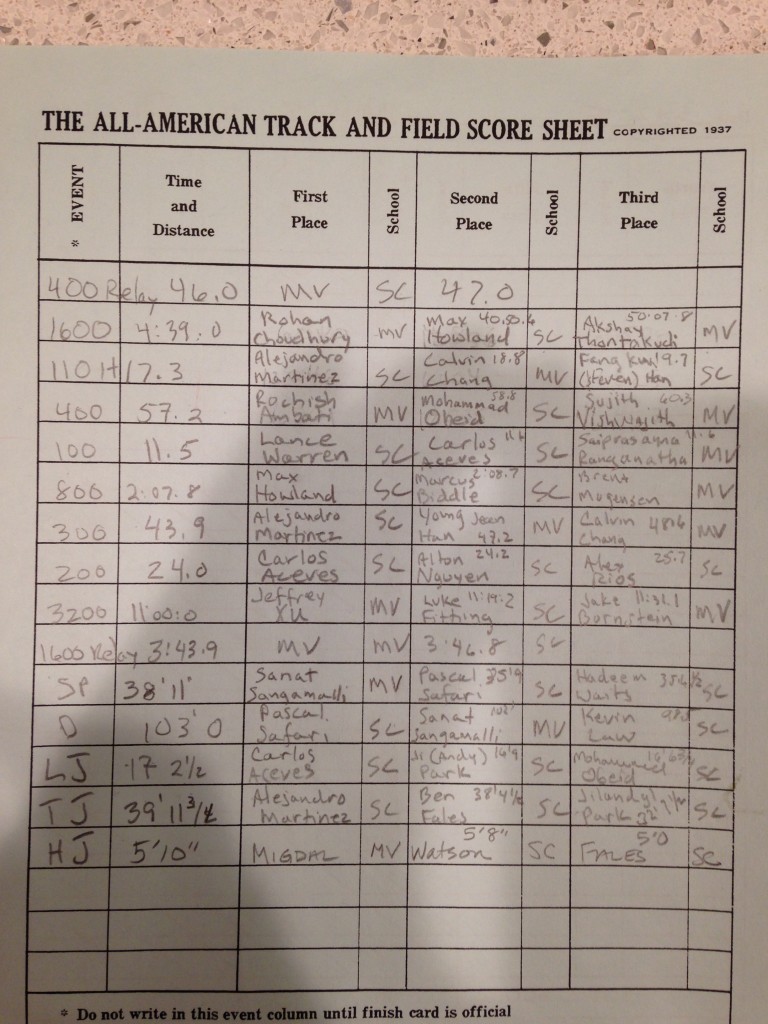 THE ALL-AMERICAN TRACK AND FIELD SCORE SHEET COPYRIGHTED 1937
* EVENT Time and Distance First Place School Second Place School Third Place School
400 Relay 46.0 MV SC 47.0
1600 4:39.0 Rohan Choudhury MV Max Howland SC Akshay MV
110 H 17.3 Alejandro Martinez SC Calvin 18.8 Chang MV (Steven) Han SC
400 57.2 Rochish Ambati MV Mohammad 58.8 Obeid SC Sujith 60.3 MV
100 11.5 Lance Warren SC Carlos Aceves SC Saiprasanna Ranganatha MV
800 2:07.8 Max Howland SC Marcus 2:08.7 Biddle SC Brent Mogensen MV
300 43.9 Alejandro Martinez SC Young Jean Han 47.2 MV Calvin 48.6 Chang MV
200 24.0 Carlos Aceves SC Alton 24.2 Nguyen SC Alex 25.7 Rios SC
3200 11:00:0 Jeffrey Xu MV Luke 11:19:2 Fitting SC Jake 11:31.1 Bornstein MV
1600 Relay 3:43.9 MV MV 3:46.8 SC
SP 38'11" Sanat Sangamalli MV Pascal 35'9 Safari SC Hadeem Waits SC
D 103'0 Pascal Safari SC Sanat Sangamalli MV Kevin Law SC
LJ 17 2½ Carlos Aceves SC Ji (Andy) 16'9 Park SC Mohammed Obeid SC
TJ 39'11¾ Alejandro Martinez SC Ben 38'4½ Fales SC Park SC
HJ 5'10" MIGDAL MV Watson 5'8" SC FALES 5'0 SC
* Do not write in this event column until finish card is official